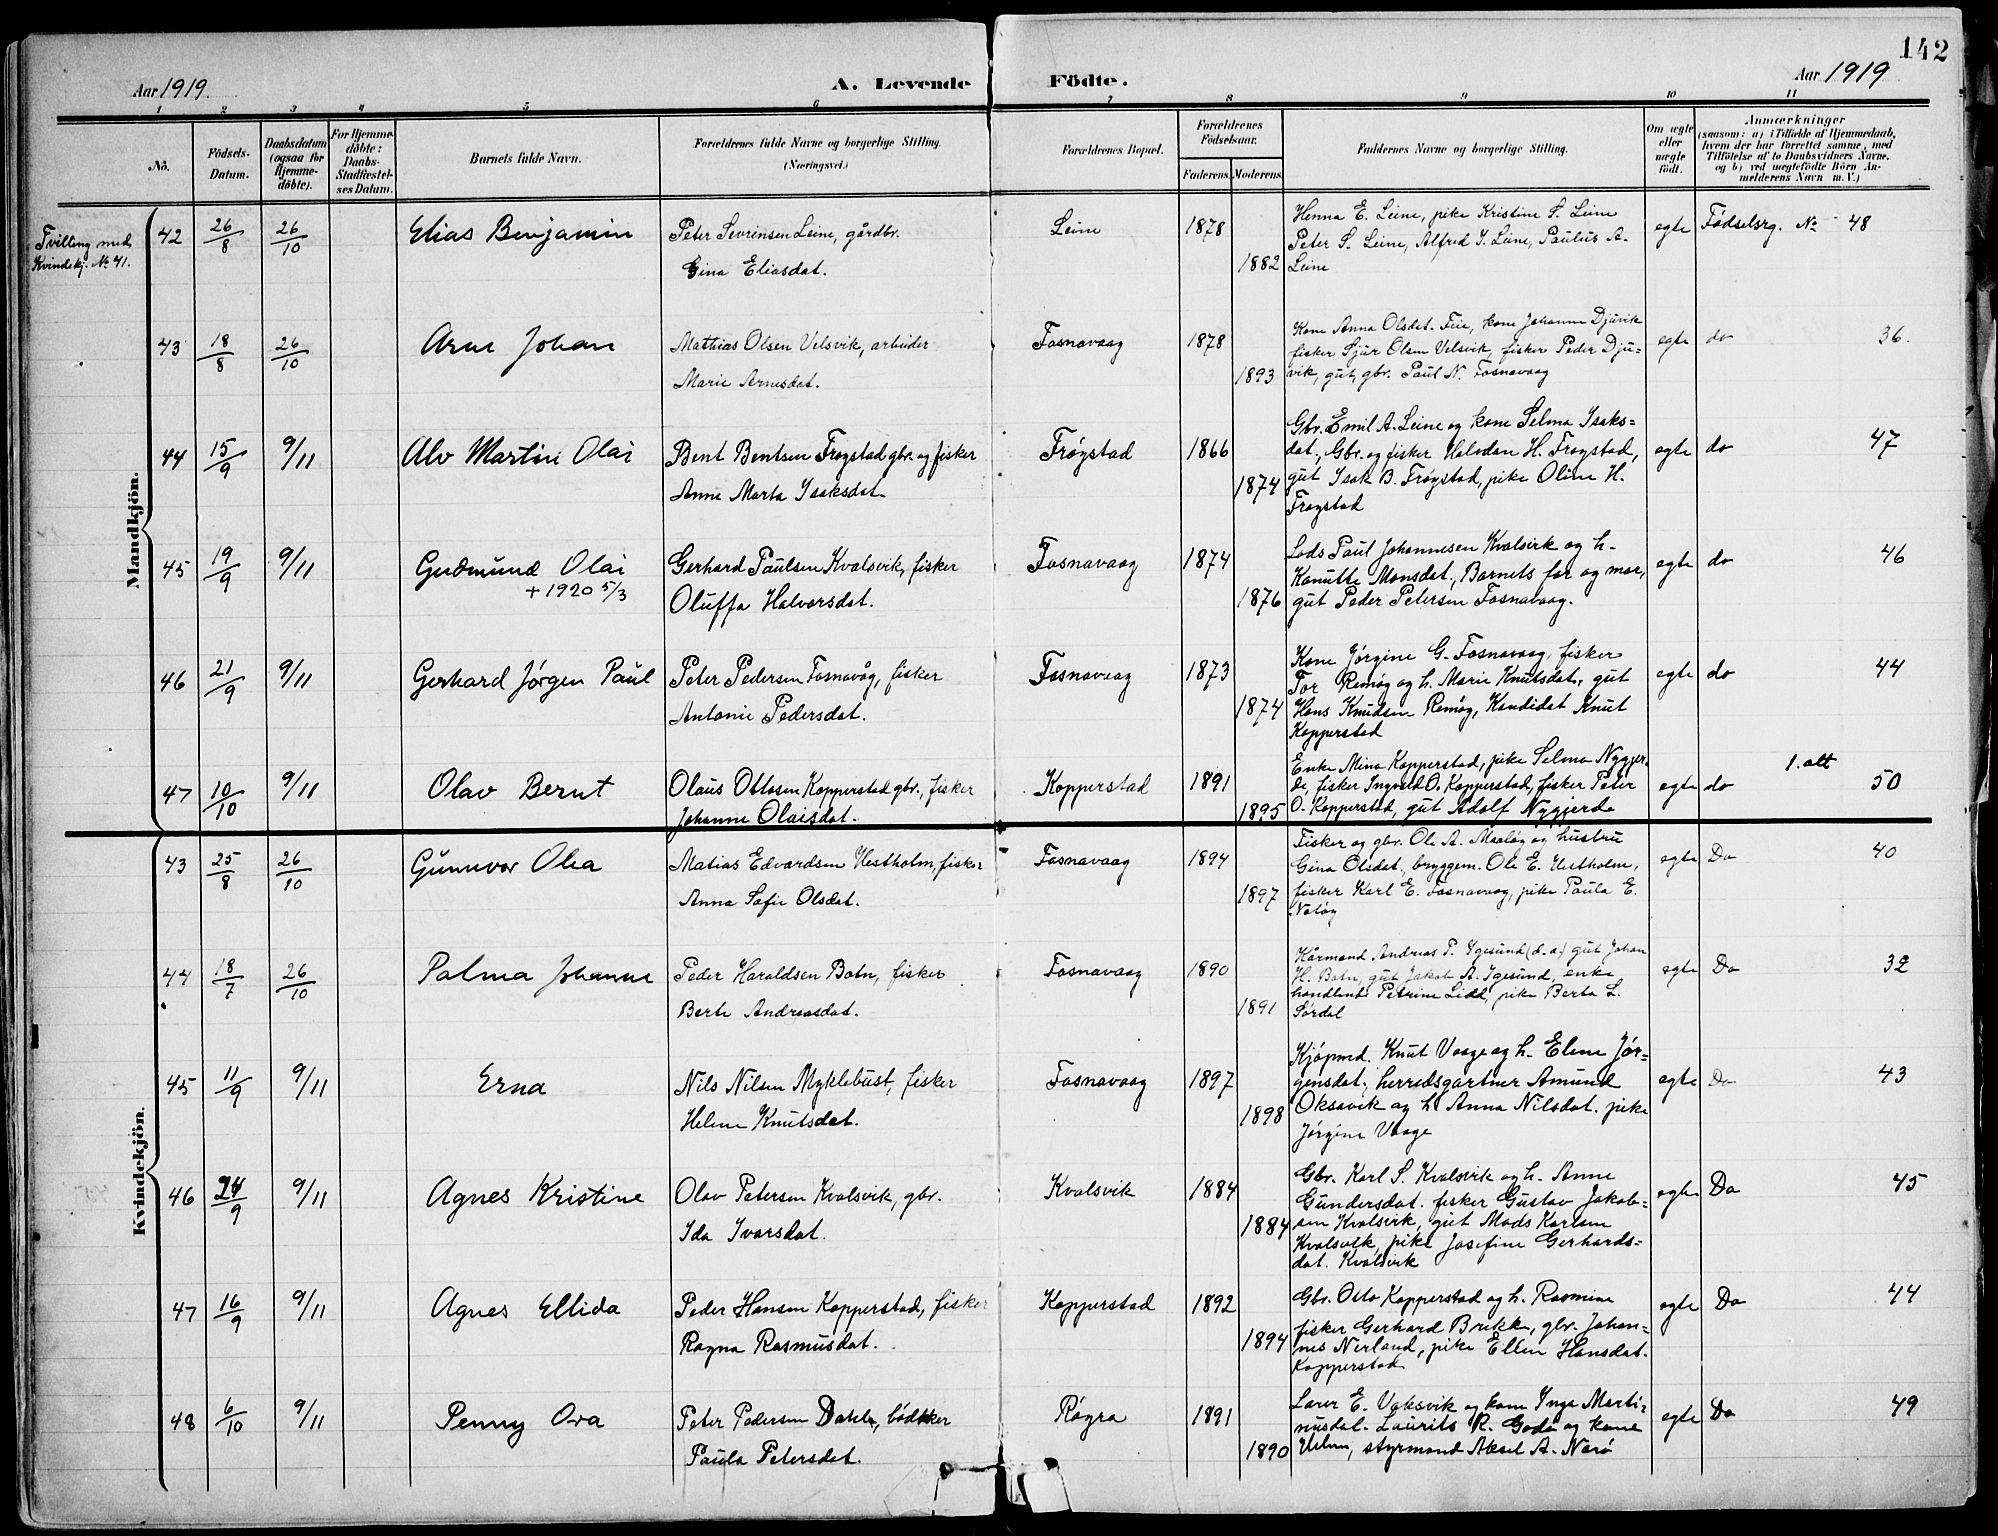 142
Aar 1919.
A. Levende Födte.
Aar 1919
1 2 3 4 5 6 7 8 9 10 11
No.
Födsels-Datum.
Daabsdatum (ogsaa for Hjemmedöbte).
For Hjemmedöbte: Daabs-Stadfæstelses Datum.
Barnets fulde Navn.
Forældrenes fulde Navne og borgerlige Stilling. (Næringsvei.)
Forældrenes Bopæl.
Forældrenes Födselsaar.
Faderens. Moderens.
Faddernes Navne og borgerlige Stilling.
Om ægte eller uægte födt.
Anmærkninger
(saasom: a) i Tilfælde af Hjemmedaab, hvem der har forrettet samme, med Tilföielse af to Daabsvidners Navne, og b) ved uægtefödte Börn Anmelderens Navn m. V.)
Mandkjön.
Tvilling med
Kvindekj. No 41.
42 26/8 26/10 Elias Benjamin
Peter Sevrinsen Leine, gårdbr.
Gina Eliasdat.
Leine 1878 1882
Henna E. Leine, pike Kristine S. Leine
Peter S. Leine, Alfred I. Leine, Paulus A.
Leine
egte Fødselsrg. No 48
43 18/8 26/10 Arne Johan
Mathias Olsen Velsvik, arbeider
Marie Arnesdat.
Fosnavaag 1878 1893
Kone Anna Olsdat. Feie, kone Johanne Djuvik
fisker Sjur Olsen Velsvik, fisker Peder Dju-
vik, gut, gbr. Paul N. Fosnavaag
egte do 36.
44 15/9 9/11 Alv Martin Olai
Bent Bentsen Frøystad gbr. og fisker
Anne Marta Isaksdat.
Frøystad 1866 1874
Gbr. Emil A. Leine og kone Selma Isaks-
dat., Gbr. og fisker Halvdan H. Frøystad,
gut Isak B. Frøystad, pike Oline H.
Frøystad
egte do 47
45 19/9 9/11 Gudmund Olai
+ 1920 5/3
Gerhard Paulsen Kvalsvik, fisker
Oluffa Halvorsdat.
Fosnavaag 1874 1876
Lods Paul Johannesen Kvalsvik og h.
Kanutte Monsdat., Barnets far og mor,
gut Peder Petersen Fosnavaag.
egte do 46
46 21/9 9/11 Gerhard Jørgen Paul
Peter Pedersen Fosnavåg, fisker
Antonie Pedersdat.
Fosnavaag 1873 1874
Kone Jørgine G. Fosnavaag, fisker
Tor Remøy og h. Marie Knutsdat., gut
Hans Knudsen Remøy, Kandidat Knut
Kopperstad
egte do 44
47 10/10 9/11 Olav Bernt
Olaus Ottosen Kopperstad gbr., fisker
Johanne Olaisdat.
Kopperstad 1891 1895
Enke Mina Kopperstad, pike Selma Nygjer-
de, fisker Ingvald O. Kopperstad, fisker Peter
O. Kopperstad, gut Adolf Nygjerde
egte do 1. att 50
Kvindekjön.
43 25/8 26/10 Gunnvor Olea
Matias Edvardsen Hestholm, fisker
Anna Sofie Olsdat.
Fosnavaag 1894 1897
Fisker og gbr. Ole A. Maaløy og hustru
Gina Olsdat., bryggem. Ole E. Hestholm,
fisker Karl E. Fosnavaag, pike Paula E.
Notøy
egte Do 40
44 18/7 26/10 Palma Johanne
Peder Haraldsen Botn, fisker
Berte Andreasdat.
Fosnavaag 1890 1891
Kårmand Andreas P. Igesund (d. a.) gut Johan
H. Botn, gut Jakob A. Igesund, enke
handlende Petrine Lidd, pike Berta L.
Sørdal
egte Do 32
45 11/9 9/11 Erna
Nils Nilsen Myklebust, fisker
Helene Knutsdat.
Fosnavaag 1897 1898
Kjøpmd. Knut Vaage og h. Elene Jør-
gensdat., herredsgartner Amund
Oksavik og h. Anna Nilsdat. pike
Jørgine Vaage
egte Do 43
46 24/9 9/11 Agnes Kristine
Olav Petersen Kvalsvik, gbr.
Ida Ivarsdat.
Kvalsvik 1884 1884
Gbr. Karl S. Kvalsvik og h. Anne
Gundersdat. fisker Gustav Jakob-
sen Kvalsvik, gut Mads Karlsen
Kvalsvik, pike Josefine Gerhards-
dat. Kvalsvik
egte Do 45
47 16/9 9/11 Agnes Ellida
Peder Hansen Kopperstad, fisker
Ragna Rasmusdat.
Kopperstad 1892 1894
Gbr. Otto Kopperstad og h. Rasmine
fisker Gerhard Brekke, gbr. Johan-
nes Nerland, pike Ellen Hansdat.
Kopperstad
egte Do 44
48 6/10 9/11 Penny Ova
Peter Pedersen Dahle, bødkker
Paula Petersdat.
Røyra 1891 1890
Lærer E. Voksvik og kone Inga Marti-
nusdal. Laurits R. Godø og kone
styrmand Aksel A. Nerø
egte Do 49